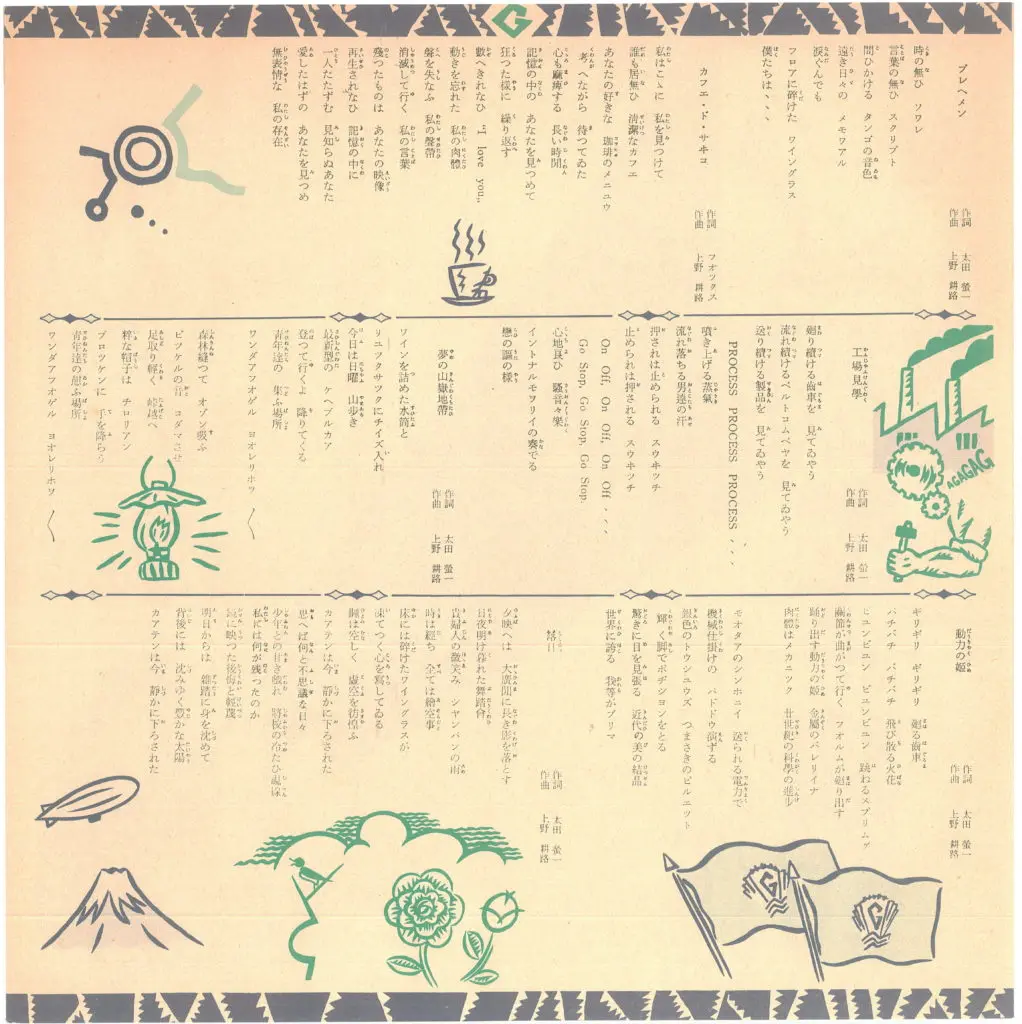 G
ブレーメン
作詞 太田 螢一
作曲 上野 耕路
時の無ひ ソワレ
言葉の無ひ スクリプト
問ひかける タンゴの音色
遠き日々の メモワアル
涙ぐんでも
フロアに砕けた ワイングラス
僕たちは、、、
カフエ・ド・サキコ
作詞 フオツクス
作曲 上野 耕路
私はこゝに 私を見つけて
誰も居無ひ 清潔なカフエ
あなたの好きな 珈琲のメニユウ
考へながら 待つてゐた
心も麻痺する 長い時間
記憶の中の あなたを見つめて
狂つた様に 繰り返す
數へきれなひ "I love you"
動きを忘れた 私の肉體
聲を失なふ 私の聲帶
消滅して行く 私の言葉
殘つたものは あなたの映像
再生されなひ 記憶の中に
一人たたずむ 見知らぬあなた
愛したはずの あなたを見つめ
無表情な 私の存在
工場見學
作詞 太田 螢一
作曲 上野 耕路
廻り續ける齒車を 見てゐやう
流れ續けるベルトコムベヤを 見てゐやう
送り續ける製品を 見てゐやう
PROCESS PROCESS PROCESS、、、
噴き上げる蒸氣
流れ落ちる男達の汗
押されは止められる スウヰツチ
止められは押される スウヰツチ
On Off, On Off, On Off、、、
Go Stop, Go Stop, Go Stop.
心地良ひ 騒音々樂
イントナルモリイの奏でる
戀の謳の様
AGAGAG
夢の山嶽地帶
作詞 太田 螢一
作曲 上野 耕路
ワインを詰めた水筒と
リユツクサツクにチイズ入れ
今日は日曜 山歩き
最新型の ケヘブルカア
登つて行くよ 降りてくる
青年達の 集ふ場所
ワンダアフオゲル ヨオレリホツ 〱
森林縫つて オゾン吸ふ
ピツケルの音 コダマさせ
足取り輕く 峠越へ
粹な帽子は チロリアン
ブロツケンに 手を降らう
青年達の憩ふ場所
ワンダアフオゲル ヨオレリホツ 〱
動力の姫
作詞 太田 螢一
作曲 上野 耕路
ギリギリ ギリギリ 廻る齒車
バチバチ バチバチ 飛び散る火花
ビユンビユン ビユンビユン 跳ねるスプリムグ
關節が曲がつて行く フオルムが廻り出す
踊り出す動力の姫 金屬のバレリイナ
肉體はメカニツク 廿世紀の科學の進步
モオタアのシンホニイ 送られる電力で
機械仕掛けの パドドウ演ずる
銀色のトウシユウズ つまさきのピルエツト
輝く脚でポヂシヨンをとる
驚きに目を見張る 近代の美の結晶
世界に誇る 我等がプリマ
作詞 太田 螢一
作曲 上野 耕路
夕映へは 大廣間に長き影を落とす
日夜明け暮れた舞踏會
貴婦人の微笑み シヤンパンの雨
時は經ち 全ては絵空事
床には砕けたワイングラスが
凍てつく心を寫してゐる
瞳は空しく 虚空を彷徨ふ
カアテンは今 靜かに下ろされた
思へば何と不思議な日々
少年との甘き戯れ 將校の冷たひ視線
私には何が残ったのか
鏡に映つた後悔と輕蔑
明日からは 雑踏に身を沈めて
背後には 沈みゆく豊かな太陽
カアテンは今 靜かに下ろされた
G
G